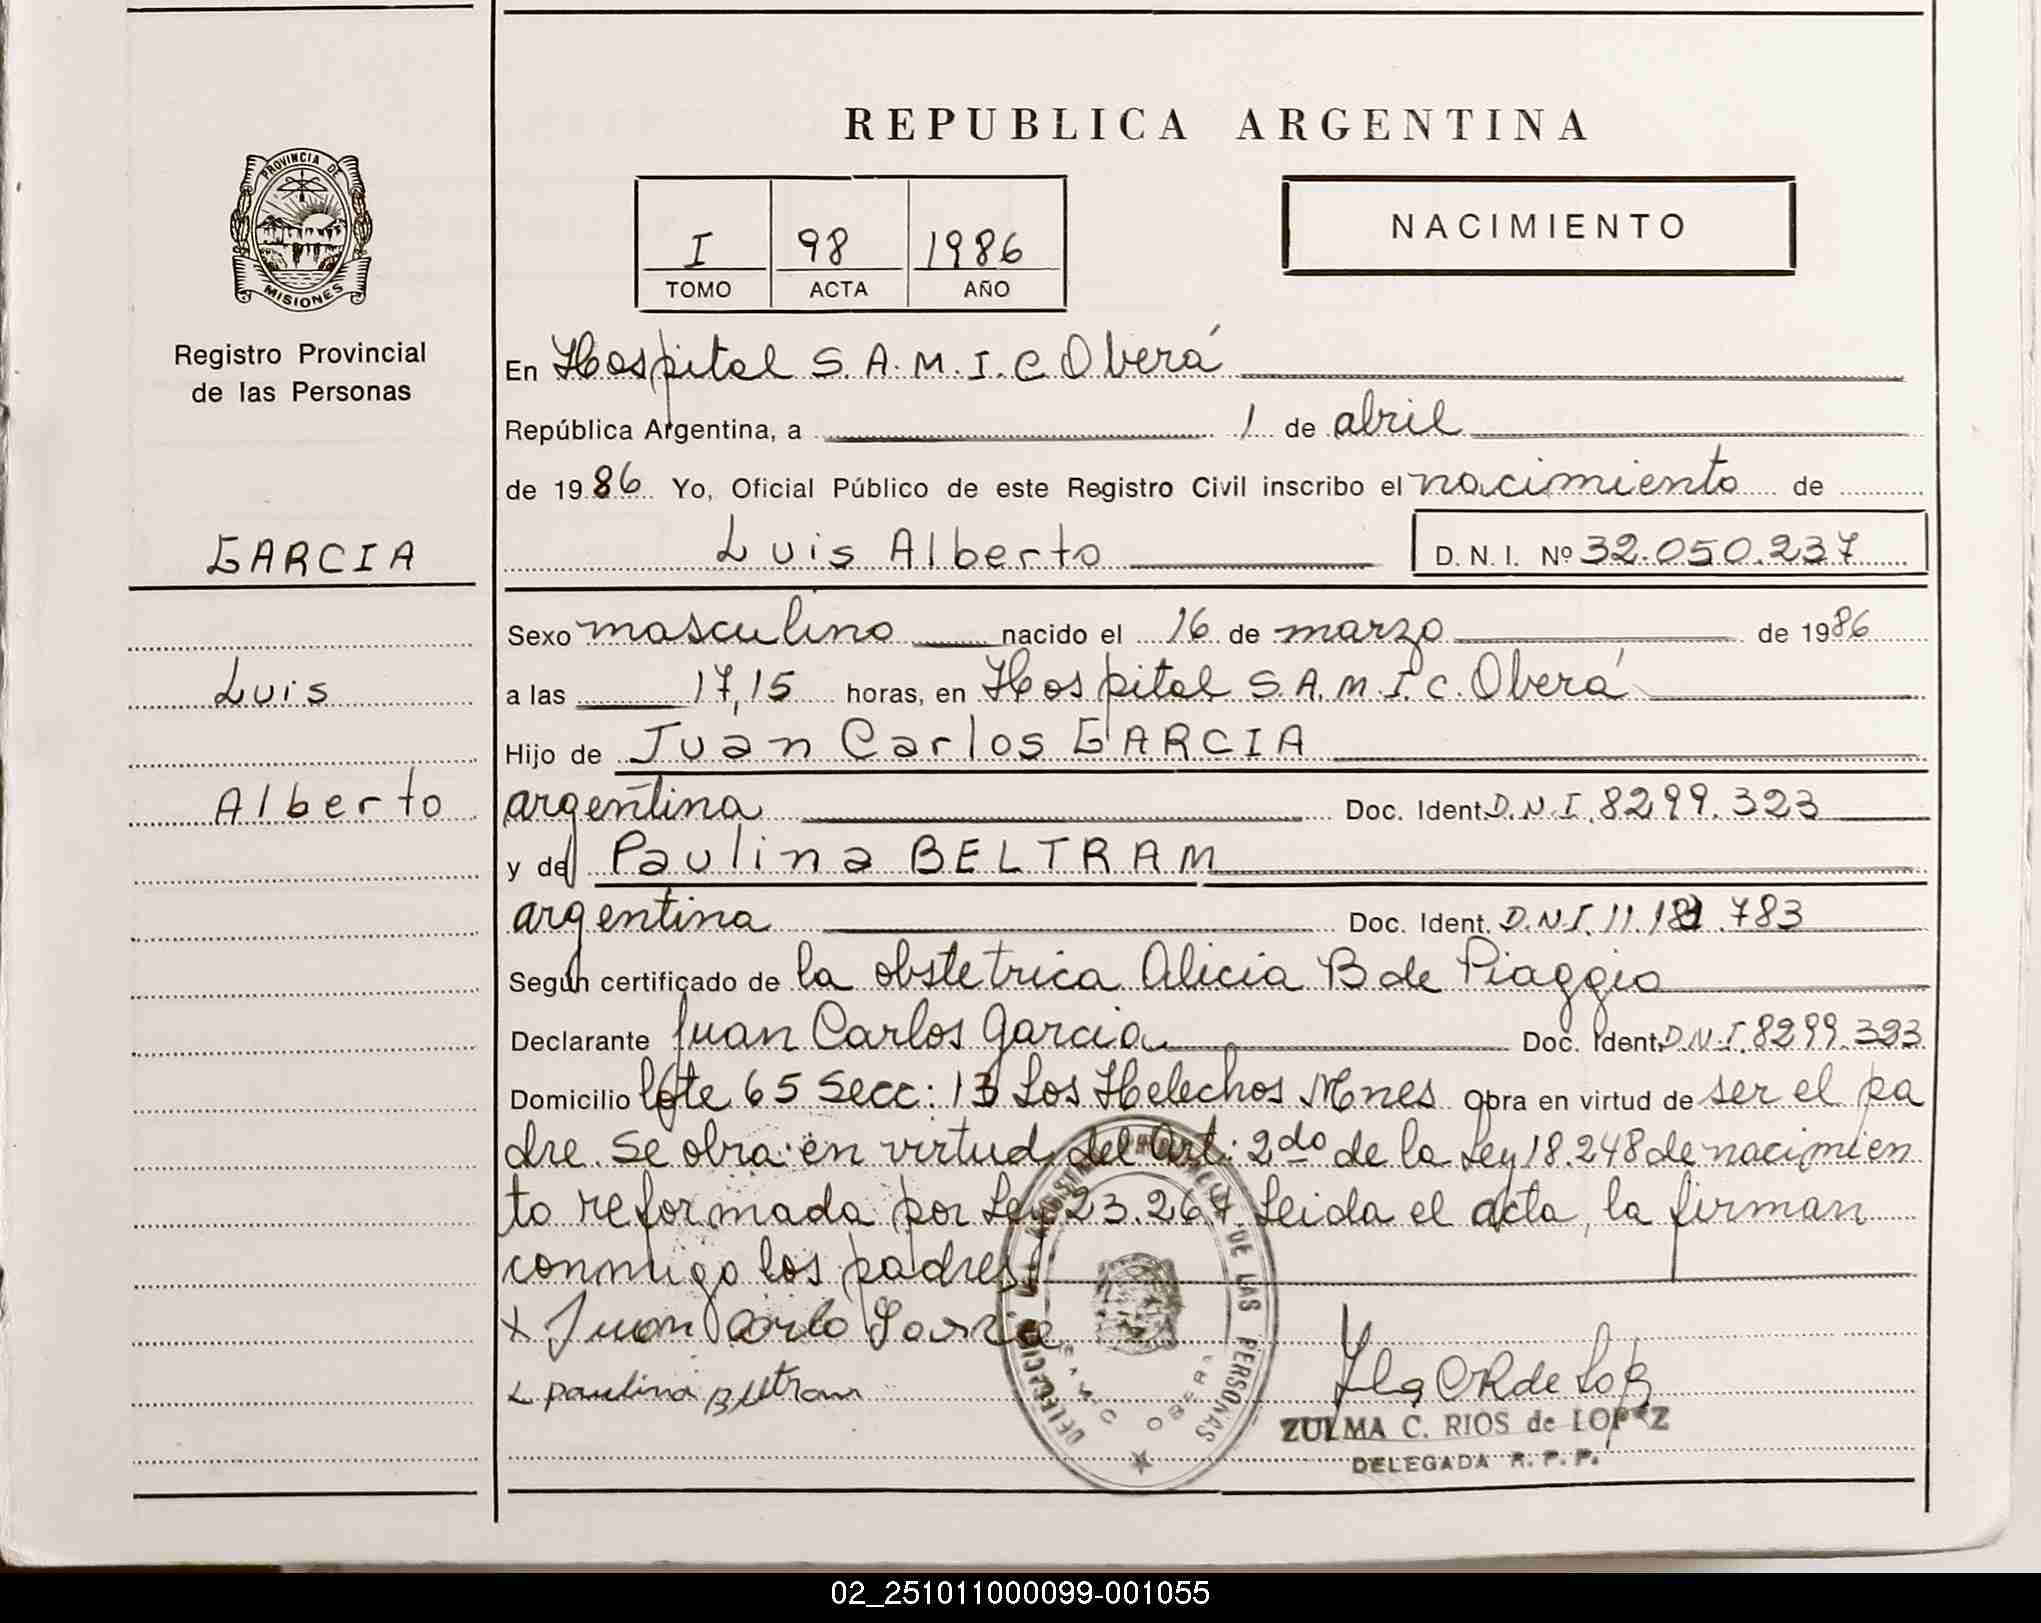 REPUBLICA ARGENTINA
PROVINCIA DE
MISIONES
Registro Provincial
de las Personas
I 98 1986
TOMO ACTA AÑO
NACIMIENTO
En Hospital S.A.M.I.C Oberá
República Argentina, a 1 de abril
de 1986 Yo, Oficial Público de este Registro Civil inscribo el nacimiento de
GARCIA
Luis Alberto D.N.I. Nº 32.050.237
Sexo masculino nacido el 16 de marzo de 1986
Luis
a las 17,15 horas, en Hospital S.A.M.I.C. Oberá
Hijo de Juan Carlos GARCIA
Alberto
argentina Doc. Ident. D.N.I. 8299.323
y de Paulina BELTRAM
argentina Doc. Ident. D.N.I. 11.181.783
Según certificado de la obstetrica Alicia B de Piaggio
Declarante Juan Carlos Garcia Doc. Ident. D.N.I. 8299.323
Domicilio lote 65 Secc: 13 Los Helechos Mnes Obra en virtud de ser el pa
dre. Se obra en virtud del Art: 2do de la Ley 18.248 de nacimien
to reformada por Ley 23.267. Leida el acta, la firman
conmigo los padres
x Juan Carlo Garcia
x paulina Beltram
DE LAS PERSONAS
DELEGACION
SAMIC OBERA
ZULMA C. RIOS de LOPEZ
DELEGADA R.P.P.
02_251011000099-001055